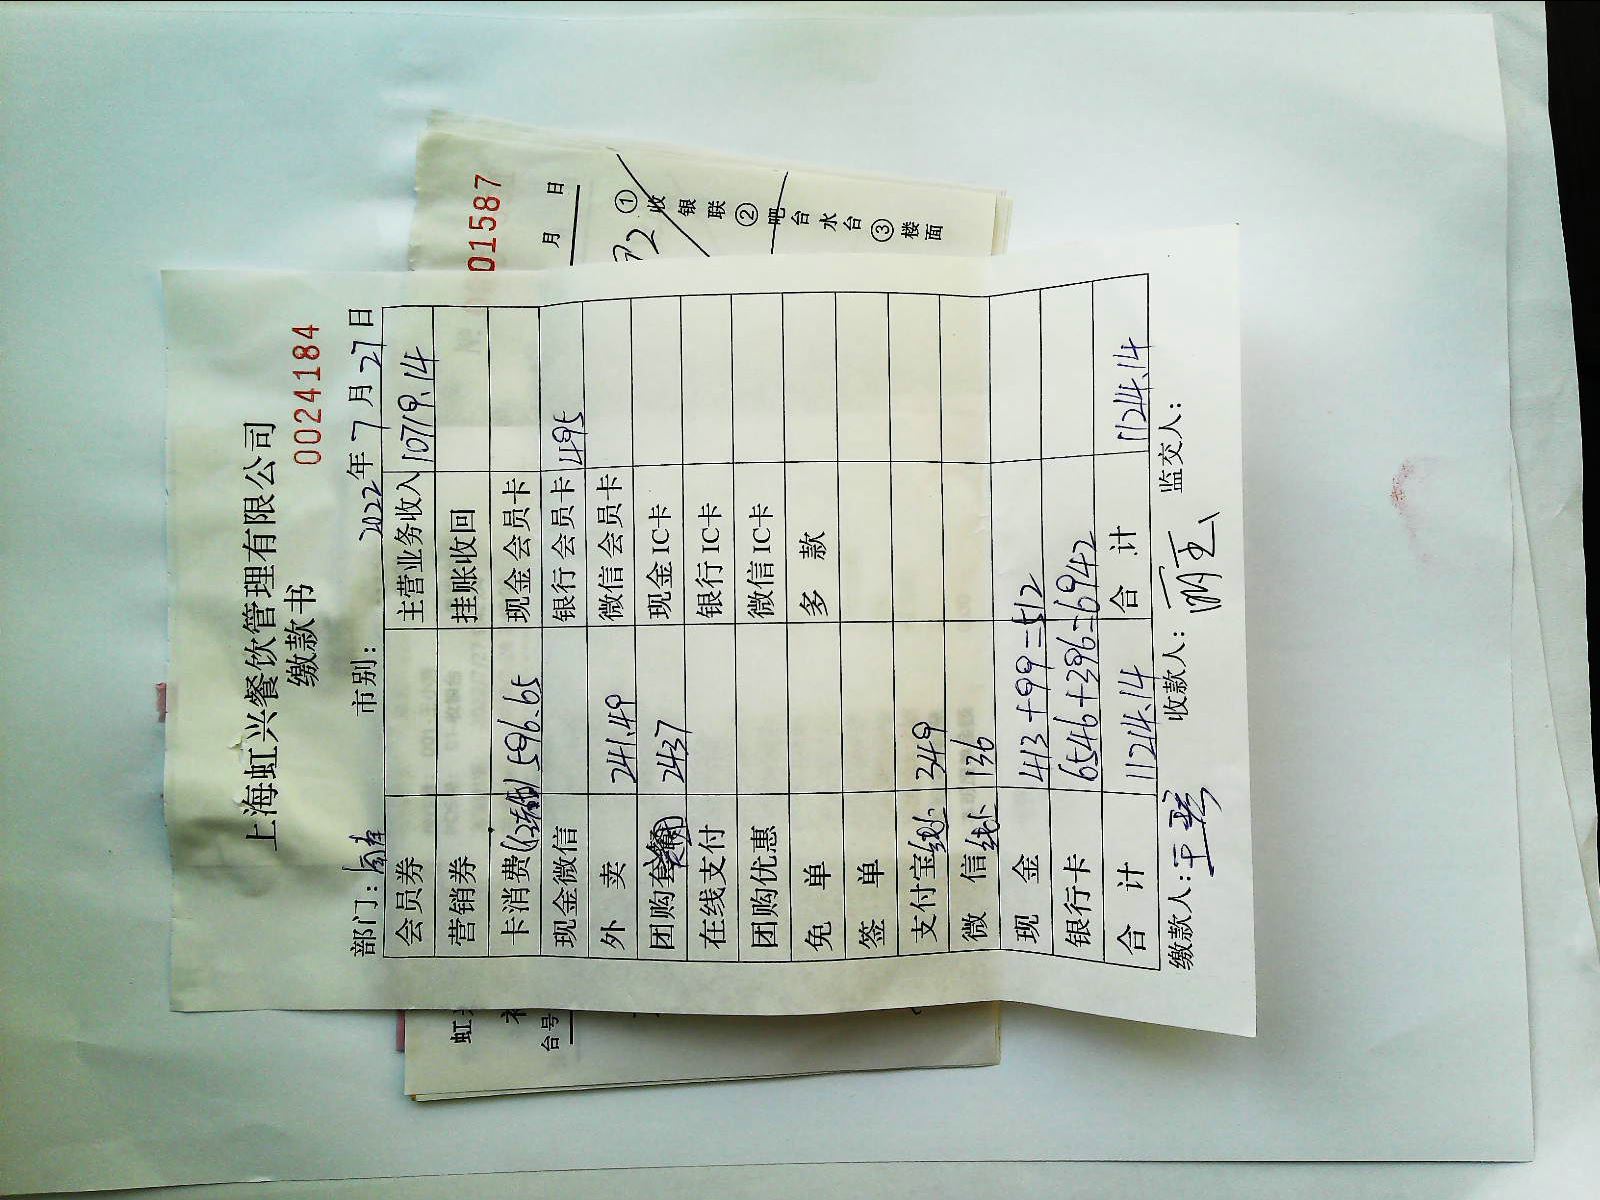 上海虹兴餐饮管理有限公司
缴款书
0024184
部门: 市别: 2022年7月27日
会员券 主营业务收入 10719.14
营销券 挂账收回
卡消费 596.65 现金会员卡
现金微信 银行会员卡 495
外卖 241.49 微信会员卡
团购 2437 现金IC卡
在线支付 银行IC卡
团购优惠 微信IC卡
免单 多款
签单
支付宝 线下 349
微信 线下 136
现金 413+99=512
银行卡 6546+396=6942
合计 11214.14 合计 11214.14
缴款人: 收款人: 监交人:
01587
月 日
①收银联②吧台水台③楼面
虹兴
台号